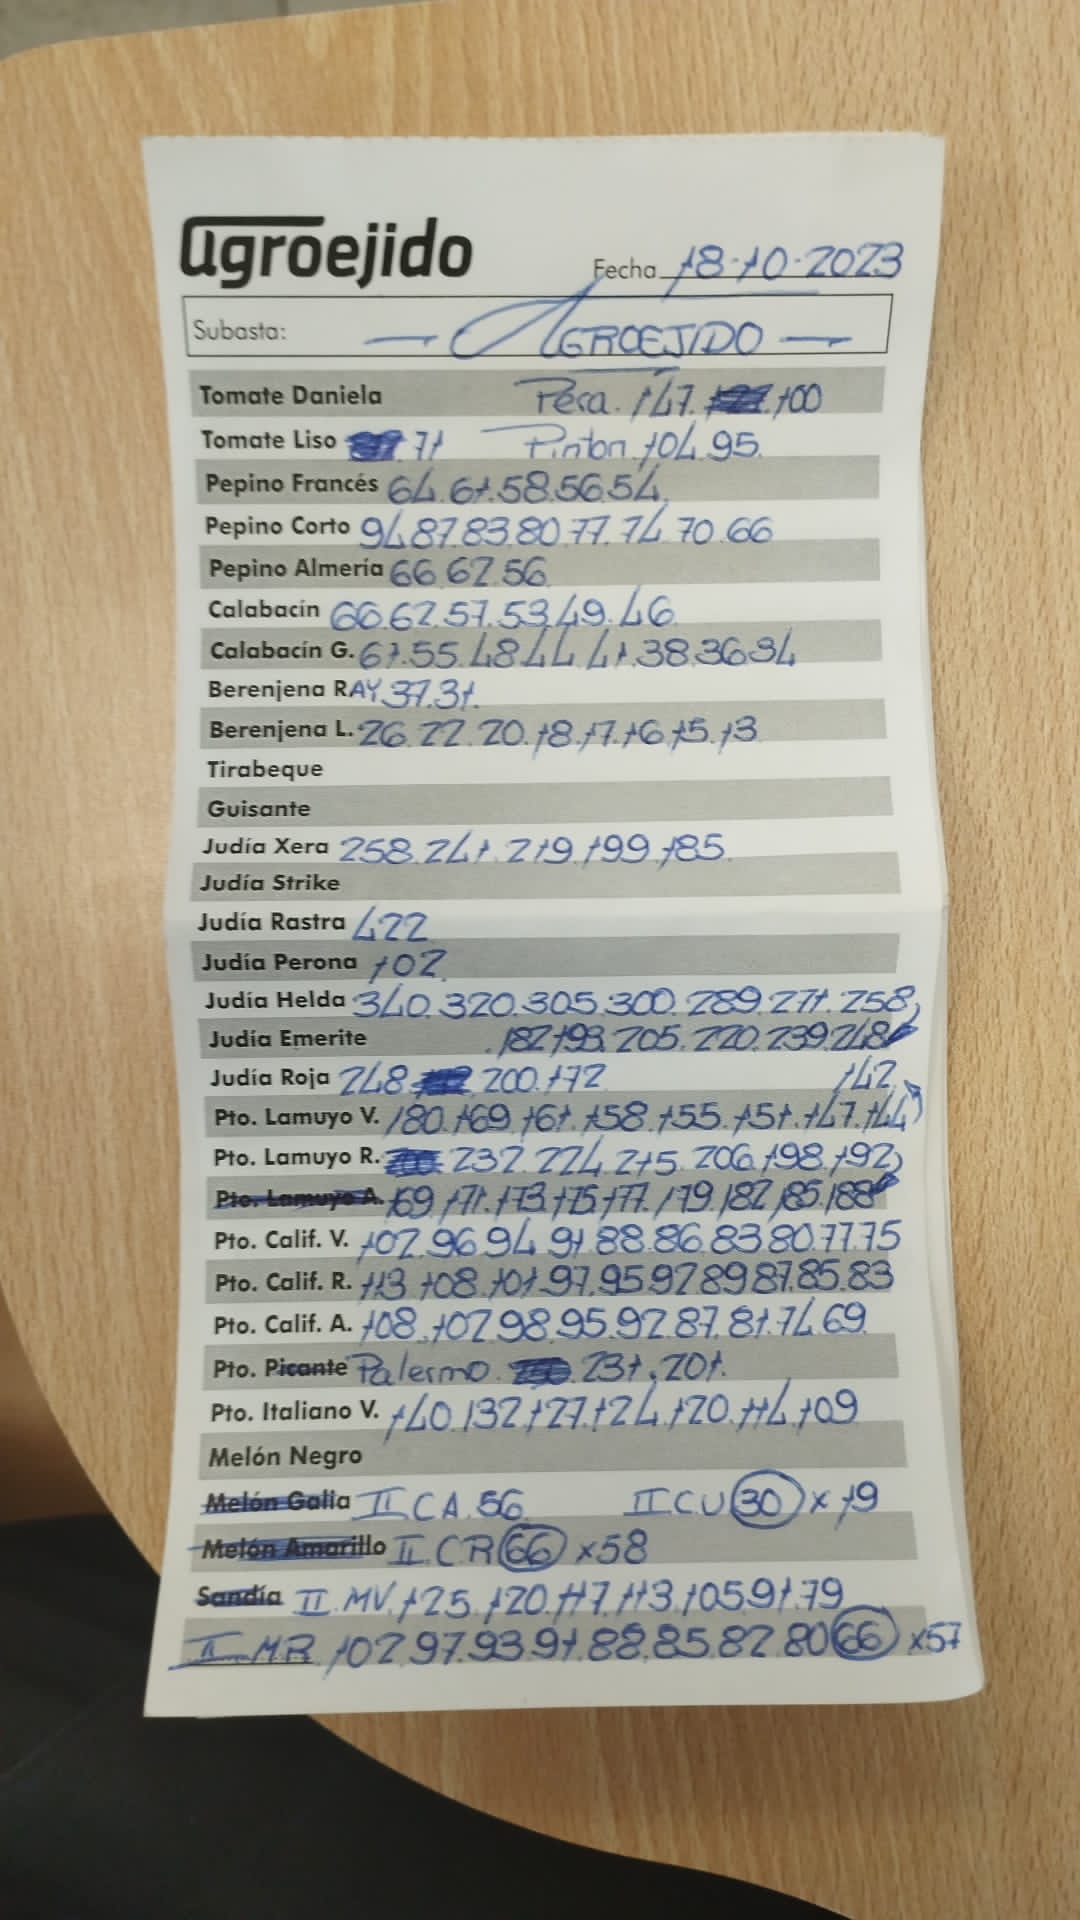 agroejido
Fecha 18-10-2023
Subasta: — AGROEJIDO —
Tomate Daniela Pera. 147. 100
Tomate Liso 71 Pinton 104.95.
Pepino Francés 64.61.58.56.54.
Pepino Corto 94.87.83.80.77.74.70.66
Pepino Almería 66.62.56.
Calabacín 66.62.57.53.49.46.
Calabacín G. 67.55.48.44.41.38.36.34
Berenjena RAY 37.31.
Berenjena L. 26.22.20.18.17.16.15.13
Tirabeque
Guisante
Judía Xera 258.241.219.199.185.
Judía Strike
Judía Rastra 422
Judía Perona 102.
Judía Helda 340.320.305.300.289.271.258
Judía Emerite .182.193.205.220.239.248
Judía Roja 248 200.172 142
Pto. Lamuyo V. 180.169.161.158.155.151.147.144
Pto. Lamuyo R. 232.224.215.206.198.192
Pto. Lamuyo A. 169.171.173.175.177.179.182.185.188
Pto. Calif. V. 102.96.94.91.88.86.83.80.77.75
Pto. Calif. R. 113.108.101.97.95.92.89.87.85.83
Pto. Calif. A. 108.102.98.95.92.87.81.74.69.
Pto. Picante Palermo. 231.201.
Pto. Italiano V. 140.132.127.124.120.114.109
Melón Negro
Melón Galia II CA.56. II CU 30 x 19
Melón Amarillo II CR 66 x58
Sandía II MV.125.120.117.113.105.91.79
II MR 102.97.93.91.88.85.82.80 66 x57